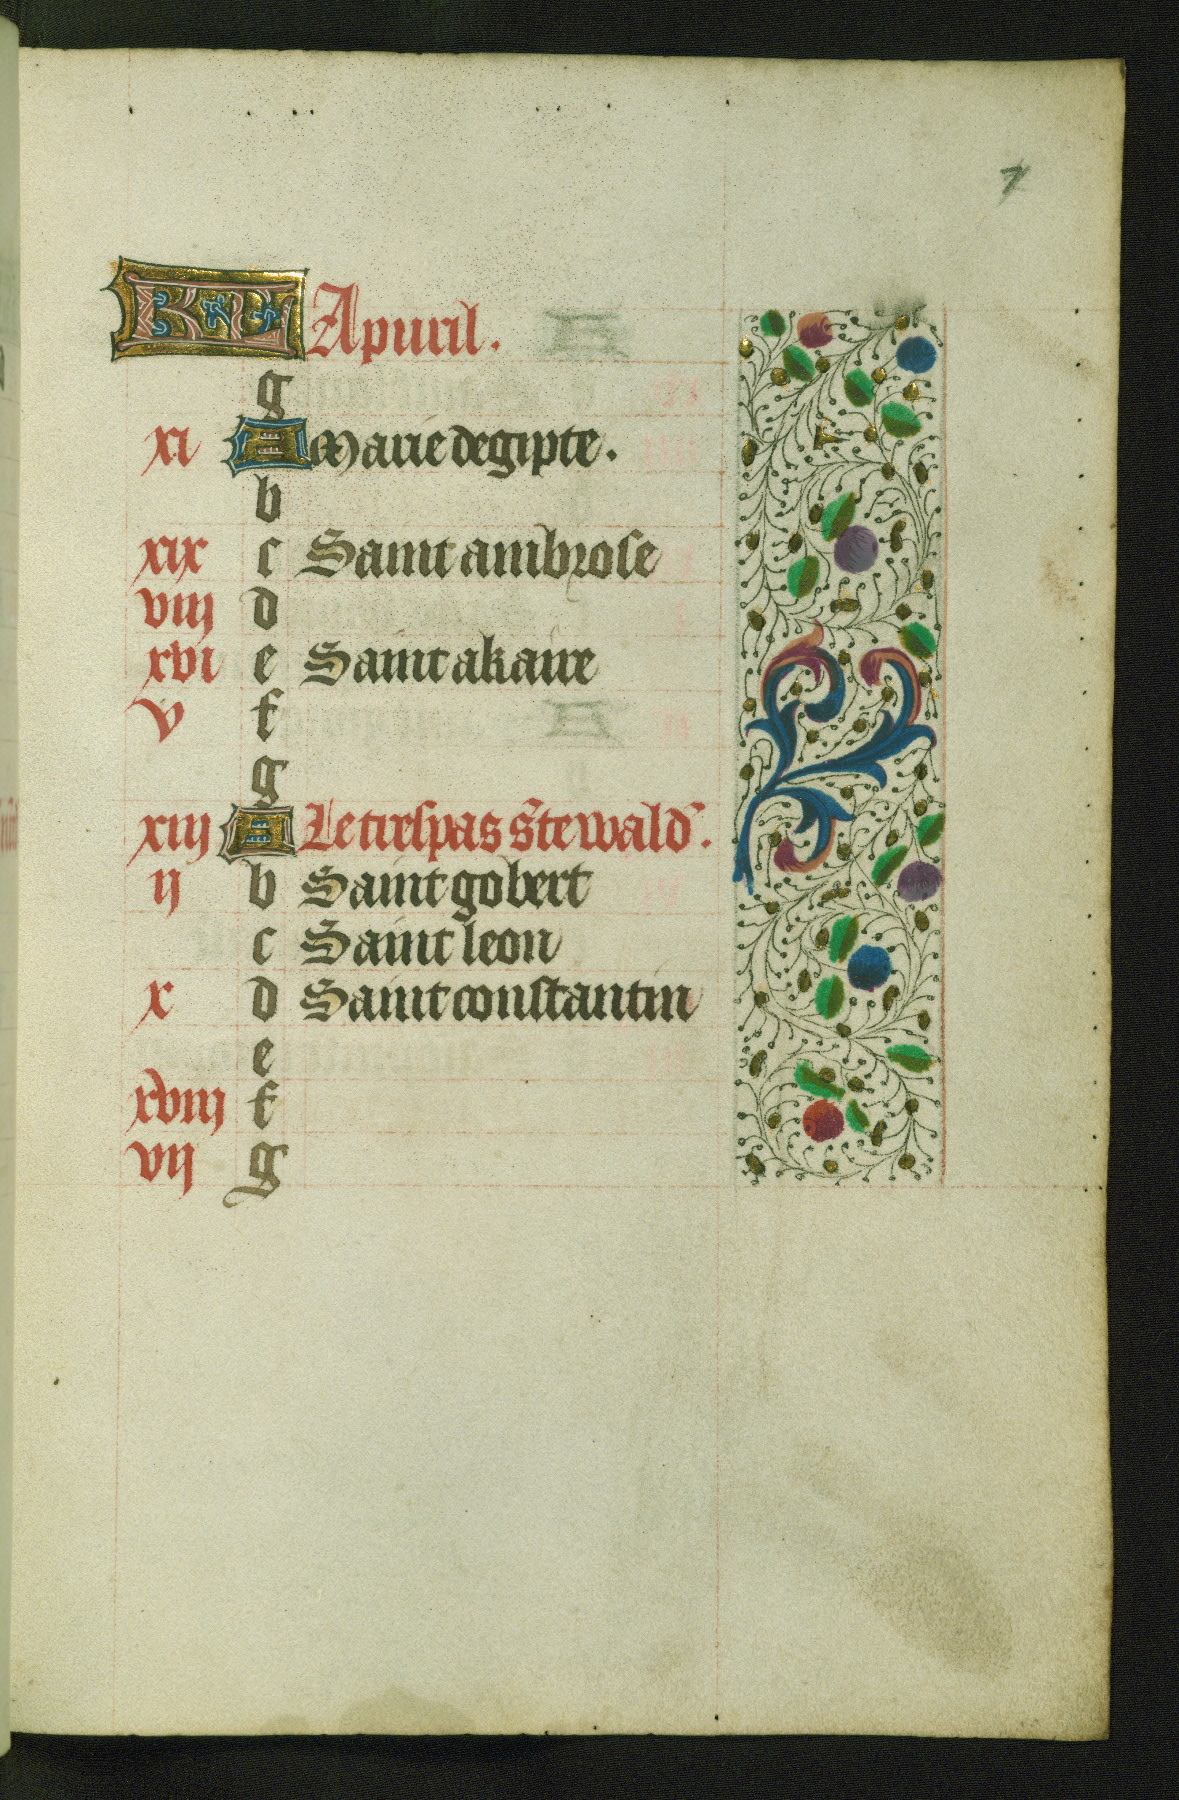 7
KL Apuril.
g
xi A Marie degipte.
b
xix c Saint ambrose
viii d
xvi e Saint akaire
v f
g
xiij A Le trespas s̃te wald̃.
ij b Saint gobert
c Saint leon
x d Saint constantin
e
xviij f
vij g